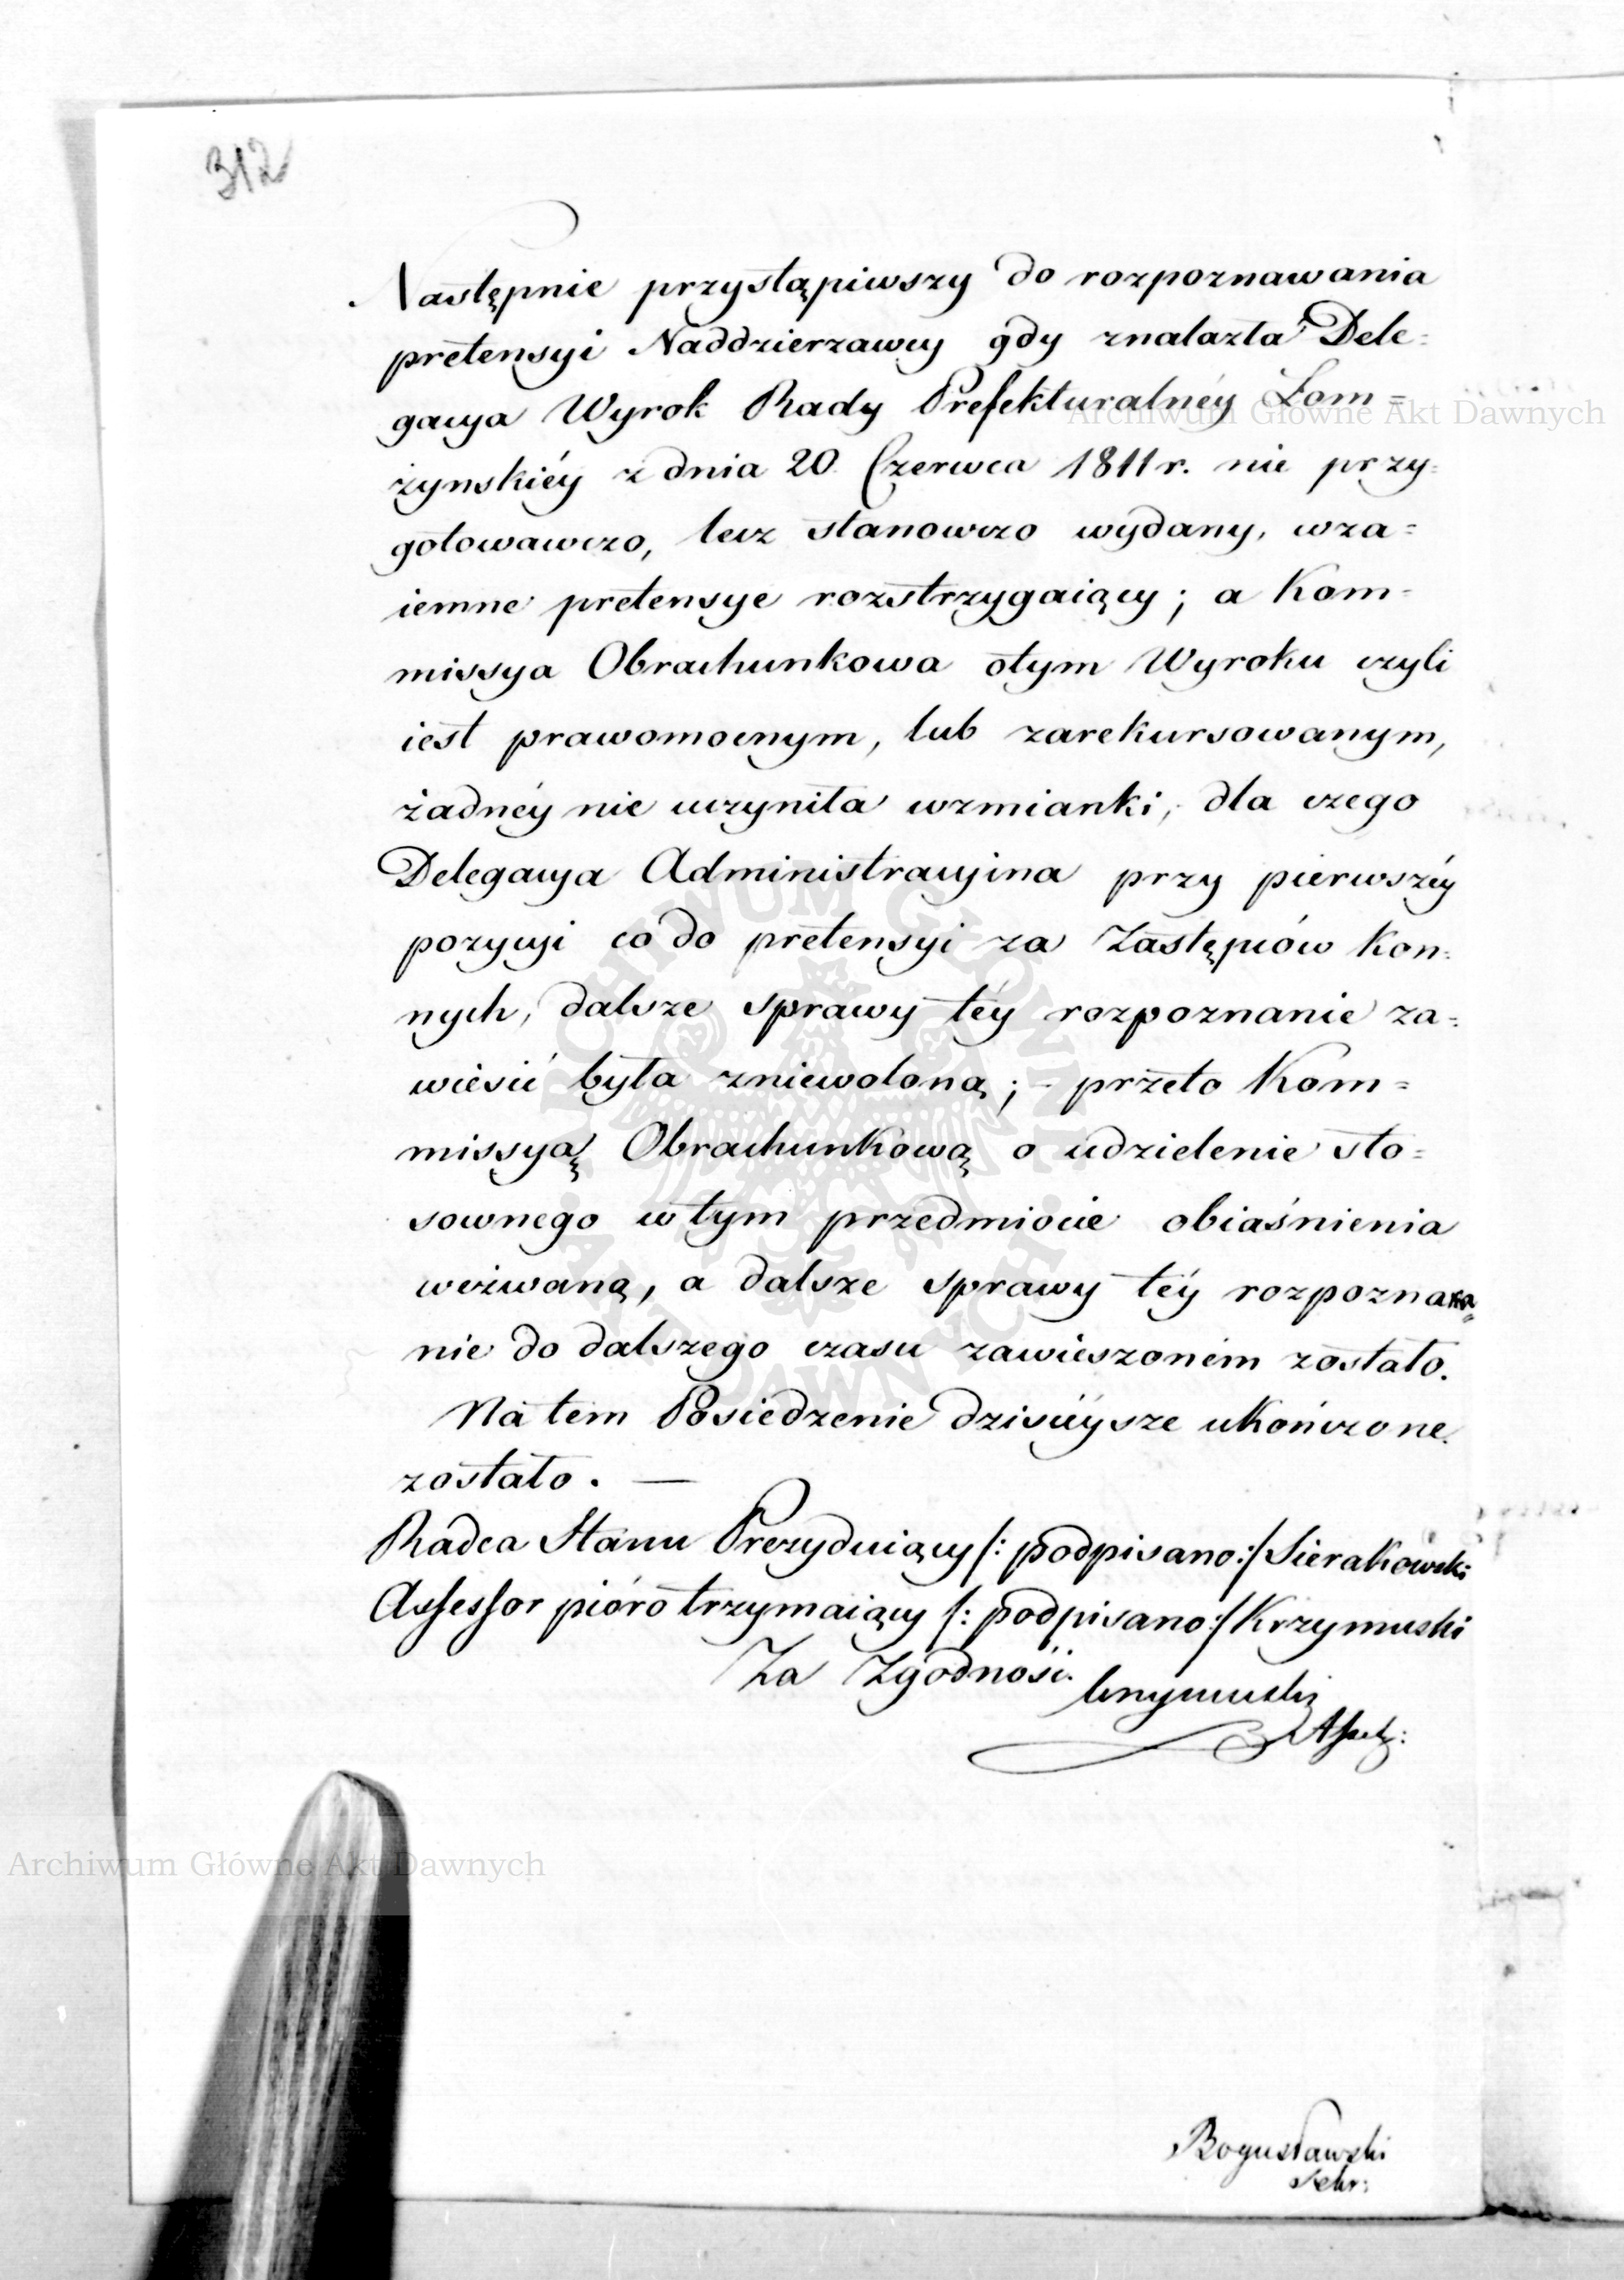 312
Następnie przystąpiwszy do rozpoznawania
pretensyi Naddzierzawcy gdy znalazła Dele=
gacya Wyrok Rady Prefekturalnéy Łom=
żynskiéy z dnia 20 Czerwca 1811 r. nie przy=
gotowawczo, lecz stanowczo wydany, wza=
iemne pretensye rozstrzygaiący; a Kom=
missya Obrachunkowa otym Wyroku czyli
iest prawomocnym, lub zarekursowanym,
żadnéy nie uczyniła wzmianki, dla czego
Delegacya Administracyjna przy pierwszéy
pozycyi co do pretensyi za Zastępców kon=
nych, dalsze sprawy téy rozpoznanie za=
wiesić była zniewoloną; - przeto Kom=
missyą Obrachunkową o udzielenie sto=
sownego w tym przedmiocie obiaśnienia
wezwaną, a dalsze sprawy téy rozpozna=
nie do dalszego czasu zawieszonem zostało.
Na tem Posiedzenie dzisiéysze ukończone
zostało. —
Radca Stanu Prezyduiący /: podpisano :/ Sierakowski
Assessor pióro trzymaiący /: podpisano :/ Krzymuski
Za Zgodność
Krzymuski
Assess:
Bogusławski
Sekr:
Archiwum Główne Akt Dawnych
Archiwum Główne Akt Dawnych
ARCHIWUM GŁÓWNE AKT DAWNYCH